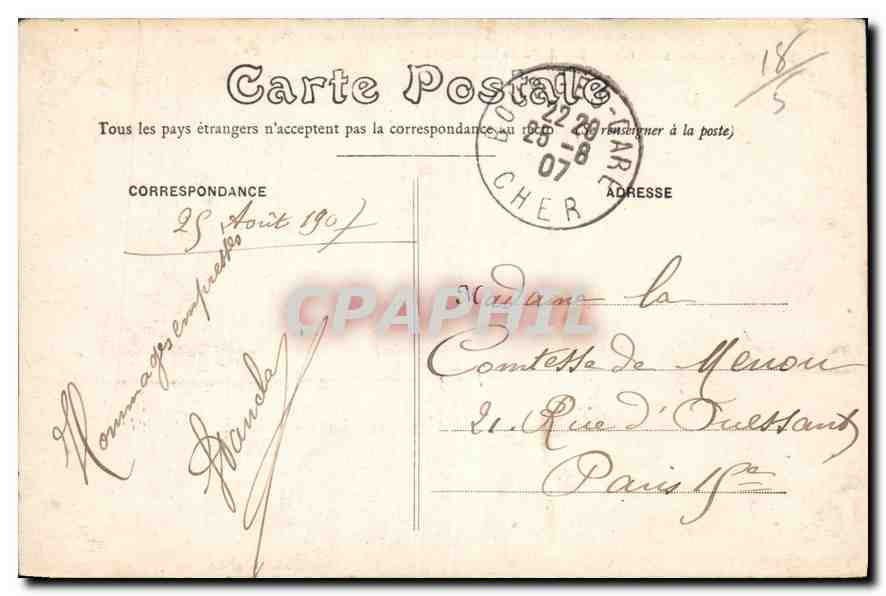 Carte Postale
Tous les pays étrangers n'acceptent pas la correspondance au recto (Se renseigner à la poste)
18/5
BOURGES-GARE
22 20
25 -8
07
CHER
CORRESPONDANCE
25 Août 1907
Hommages empressés
ADRESSE
Madame la
Comtesse de Menou
21. Rue d'Ouessant
Paris 15e
CPAPHIL